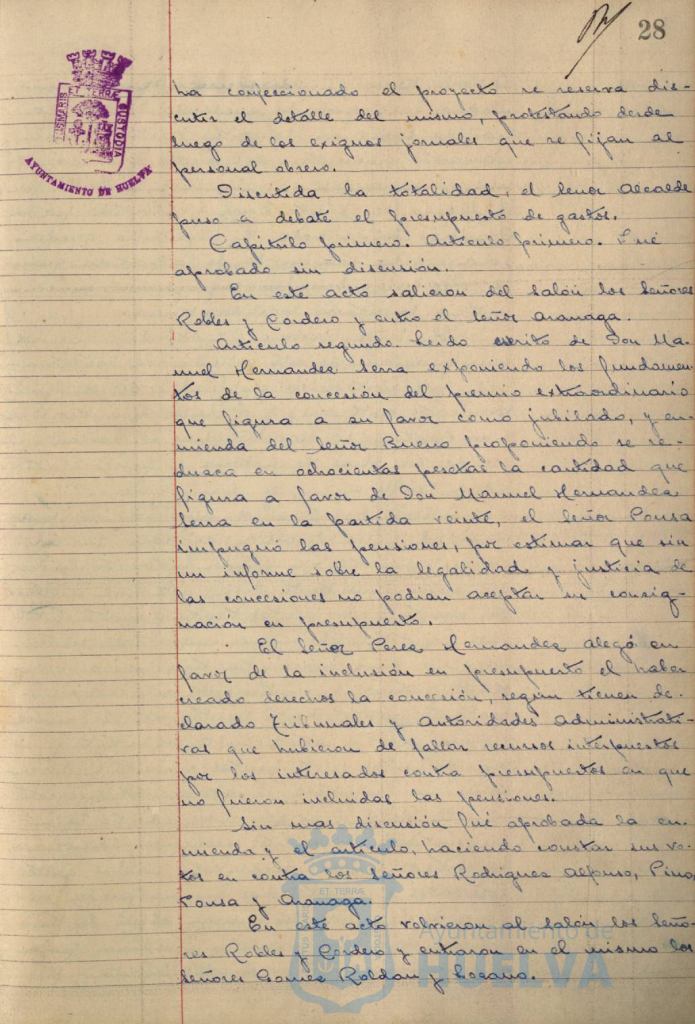 28
PORTUS MARIS
ET TERRÆ
CUSTODIA
AYUNTAMIENTO DE HUELVA
ha confeccionado el proyecto se reserva dis-
cutir el detalle del mismo, protestando desde
luego de los exiguos jornales que se fijan al
personal obrero.
Discutida la totalidad, el Señor Alcalde
puso a debate el presupuesto de gastos.
Capitulo primero. Articulo primero. Fué
aprobado sin discusión.
En este acto salieron del salón los Señores
Robles y Cordero y entro el Señor Aranaga.
Articulo segundo. Leido escrito de Don Ma
nuel Hernandez Serra exponiendo los fundamen
tos de la concesión del premio extraordinario
que figura a su favor como jubilado, y en-
mienda del Señor Bueno proponiendo se re-
duzca en ochocientas pesetas la cantidad que
figura a favor de Don Manuel Hernandez
Serra en la partida veinte, el Señor Ponsa
impugnó las pensiones, por estimar que sin
un informe sobre la legalidad y justicia de
las concesiones no podian aceptar su consig-
nación en presupuesto.
El Señor Perez Hernandez alegó en
favor de la inclusión en presupuesto el haber
creado derechos la concesión, según tienen de-
clarado Tribunales y autoridades administrati-
vas que hubieron de fallar recursos interpuestos
por los interesados contra presupuestos en que
no fueron incluidas las pensiones.
Sin mas discusión fué aprobada la en-
mienda y el articulo, haciendo constar sus vo-
tos en contra los Señores Rodriguez Alfonso, Pino,
Ponsa y Aranaga.
En este acto volvieron al salón los Seño-
res Robles y Cordero y entraron en el mismo los
Señores Gomez Roldan y Lozano.
ET TERRÆ
Ayuntamiento de
HUELVA